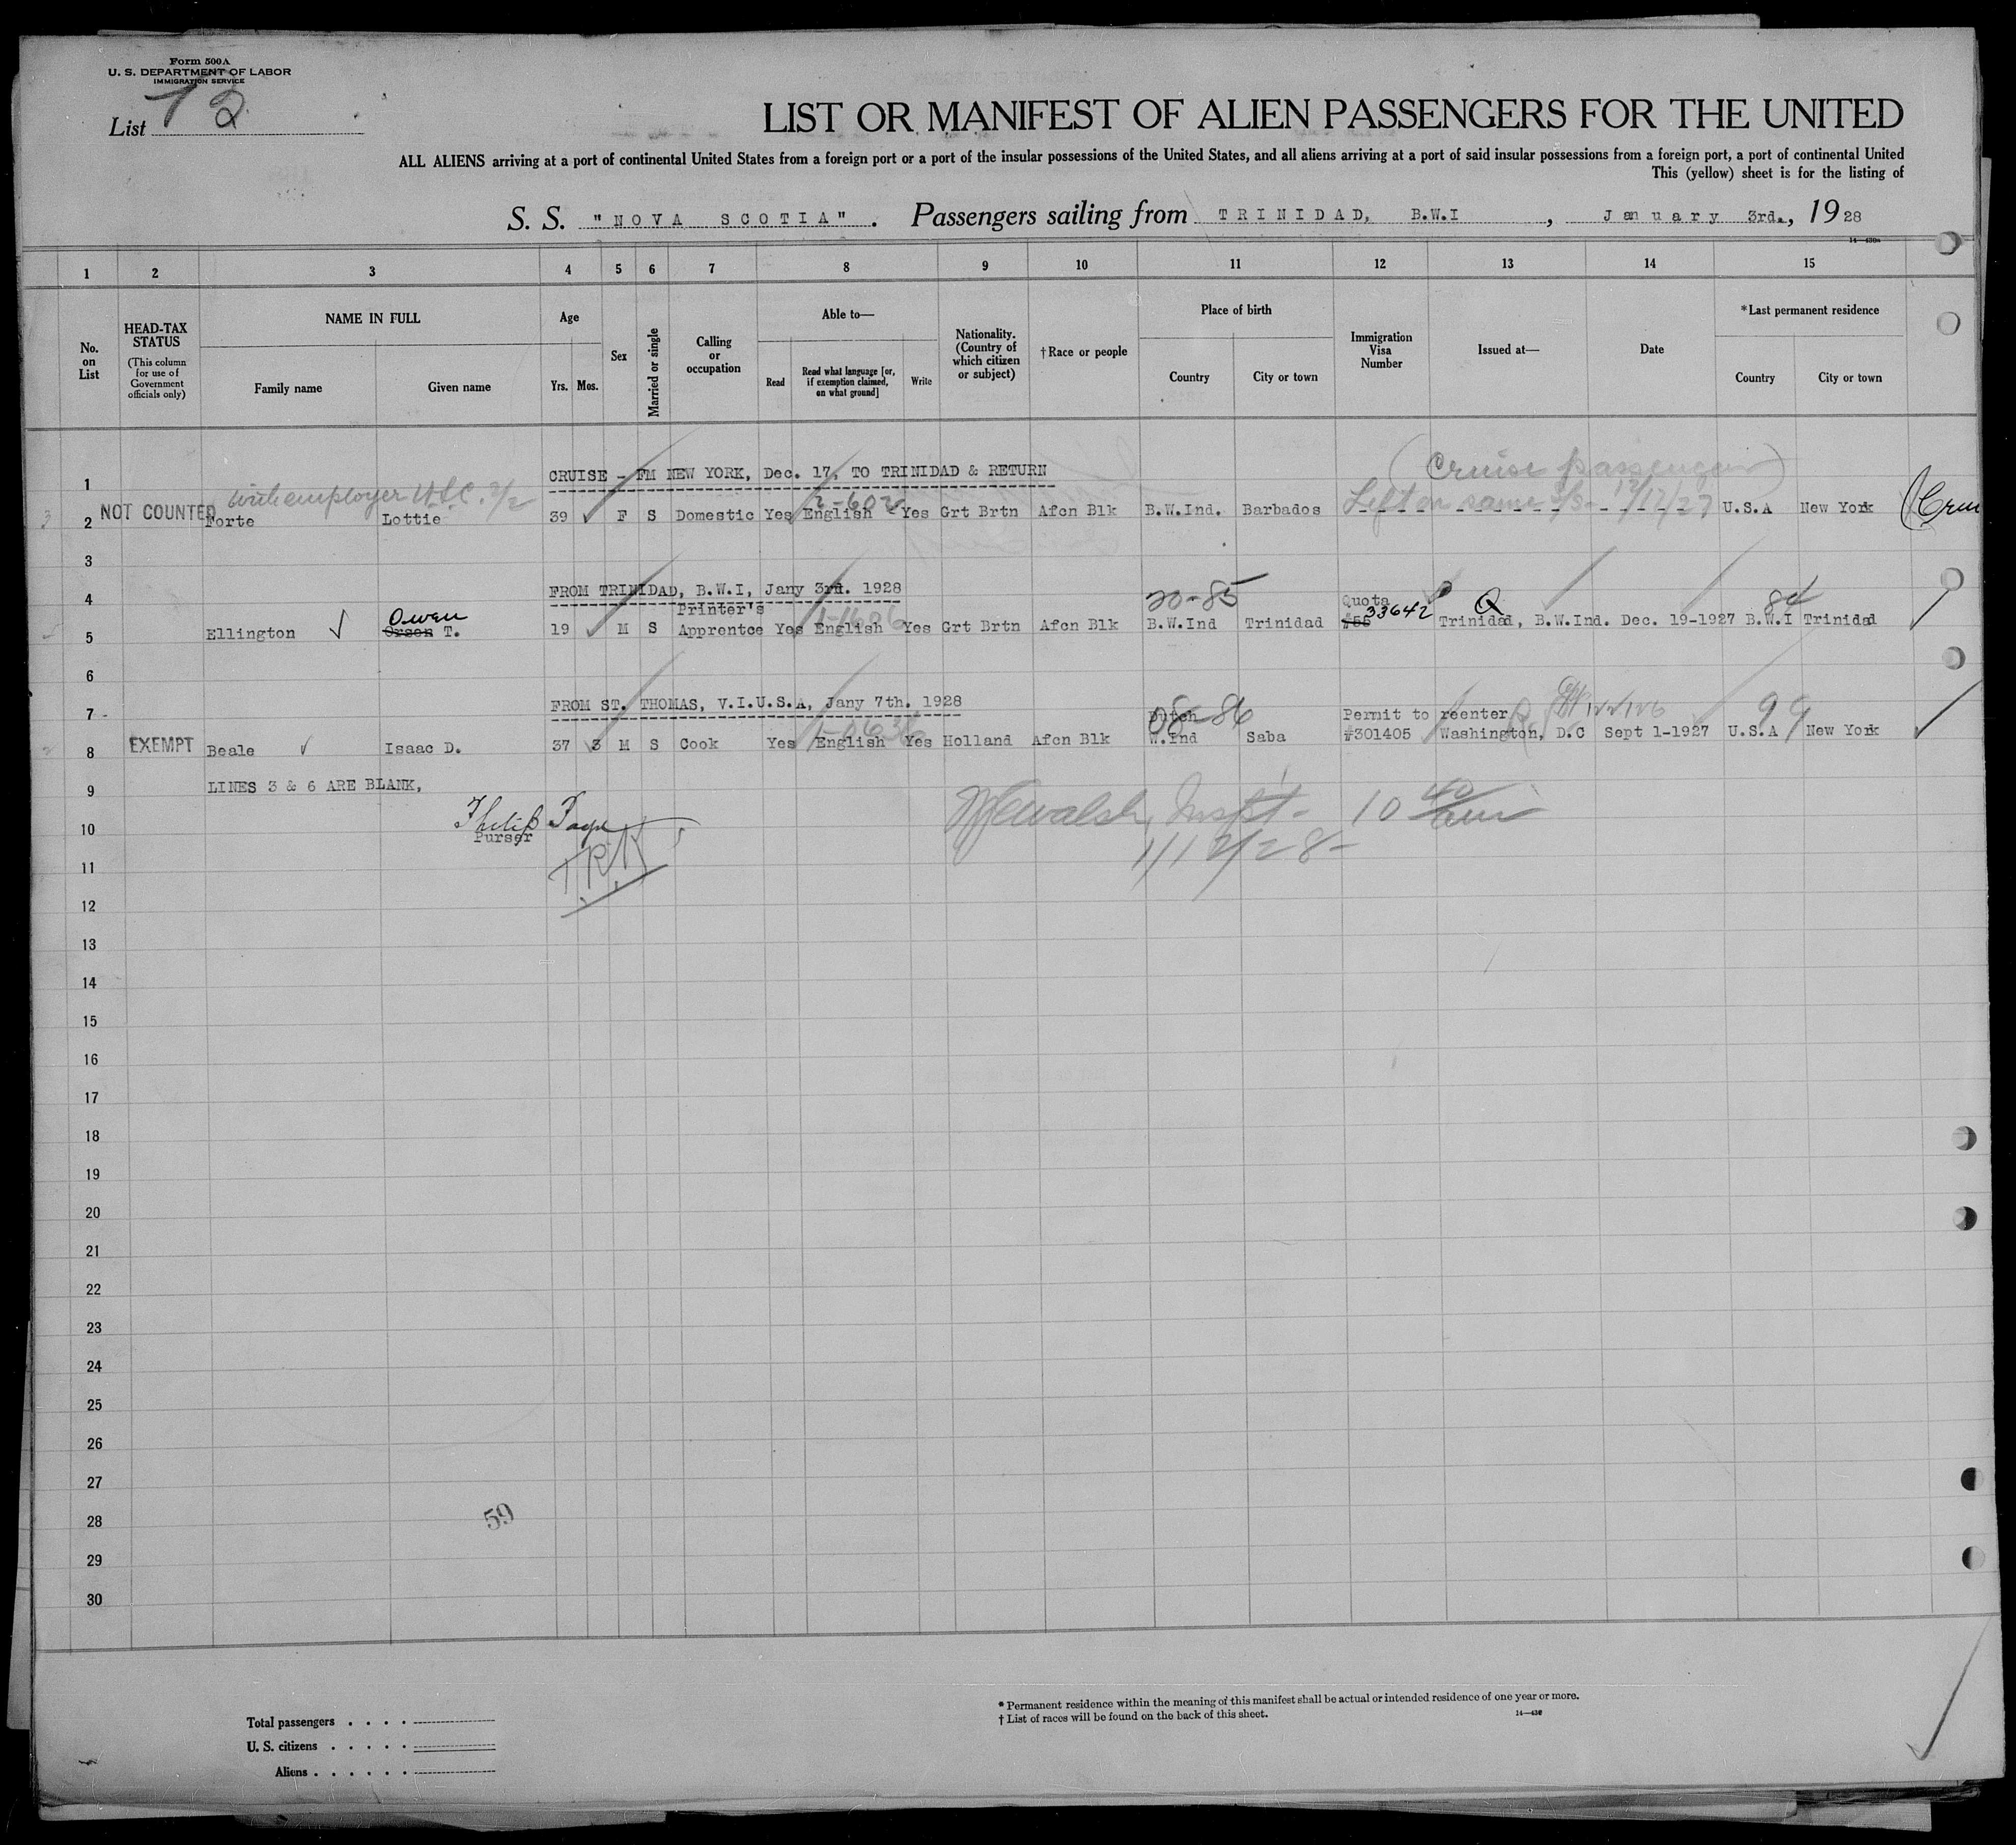 Form 500A
U. S. DEPARTMENT OF LABOR
IMMIGRATION SERVICE
List 2
LIST OR MANIFEST OF ALIEN PASSENGERS FOR THE UNITED
ALL ALIENS arriving at a port of continental United States from a foreign port or a port of the insular possessions of the United States, and all aliens arriving at a port of said insular possessions from a foreign port, a port of continental United
This (yellow) sheet is for the listing of
S. S. "NOVA SCOTIA". Passengers sailing from TRINIDAD, B.W.I, January 3rd., 1928
14—430a
1 2 3 4 5 6 7 8 9 10 11 12 13 14 15
No. on List
HEAD-TAX STATUS (This column for use of Government officials only)
NAME IN FULL
Family name Given name
Age
Yrs. Mos.
Sex
Married or single
Calling or occupation
Able to—
Read Read what language [or, if exemption claimed, on what ground] Write
Nationality. (Country of which citizen or subject)
†Race or people
Place of birth
Country City or town
Immigration Visa Number
Issued at—
Date
*Last permanent residence
Country City or town
1 CRUISE - FM NEW YORK, Dec. 17, TO TRINIDAD & RETURN (Cruise passenger)
with employer
Left on same 12/17/27
NOT COUNTED 2 Forte Lottie 39 ✓ F S Domestic Yes English Yes Grt Brtn Afcn Blk B.W.Ind. Barbados U.S.A New York
3
4 FROM TRINIDAD, B.W.I, Jany 3rd. 1928 20-85
Owen Printer's 1-1606 Quota 33642 Q 84
5 Ellington ✓ Orson T. 19 ✓ M S Apprentce Yes English Yes Grt Brtn Afcn Blk B.W.Ind Trinidad #56 Trinidad, B.W.Ind. Dec. 19-1927 B.W.I Trinidad
6
7 FROM ST. THOMAS, V.I.U.S.A, Jany 7th. 1928
Dutch 08-86 Permit to reenter 99
8 EXEMPT Beale ✓ Isaac D. 37 3 M S Cook Yes English Yes Holland Afcn Blk W.Ind Saba #301405 Washington, D.C Sept 1-1927 U.S.A New York
9 LINES 3 & 6 ARE BLANK,
10 Philip
Purser
Walsh, Inspt. 10 40/am
1/12/28-
11 T.R.K
12
13
14
15
16
17
18
19
20
21
22
23
24
25
26
27
28
59
29
30
* Permanent residence within the meaning of this manifest shall be actual or intended residence of one year or more.
† List of races will be found on the back of this sheet.
14—430
Total passengers . . . .
U. S. citizens . . . . .
Aliens . . . . . .